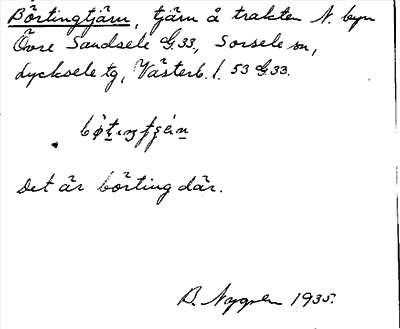 Börtingtjärn, tjärn å trakten N. byn
Övre Sandsele G.33., Sorsele sn,
Lycksele tg, Västerb. l. 53 G.33.
Det är börting där.
1935.